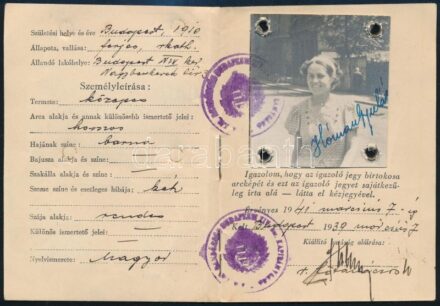 Születési helye és éve: Budapest, 1910
Állapota, vallása: férjes, rkath.
Állandó lakóhelye: Budapest XIV. ker.
Személyleírása:
Termete: közepes
Arca alakja és annak különösebb ismertető jelei:
hosszas
Hajának színe: barna
Bajusza alakja és színe:
Szakálla alakja és színe:
Szeme színe és esetleges hibája: kék
Szája alakja: rendes
Különös ismertető jelei:
Nyelvismerete: magyar
Igazolom, hogy az igazoló jegy birtokosa
arcképét és ezt az igazoló jegyet sajátkezű-
leg írta alá — látta el kézjegyével.
Érvényes 1941 március 7-ig
Kelt Budapest 1939 március 7
Kiállító hatóság aláírása:
darabanth